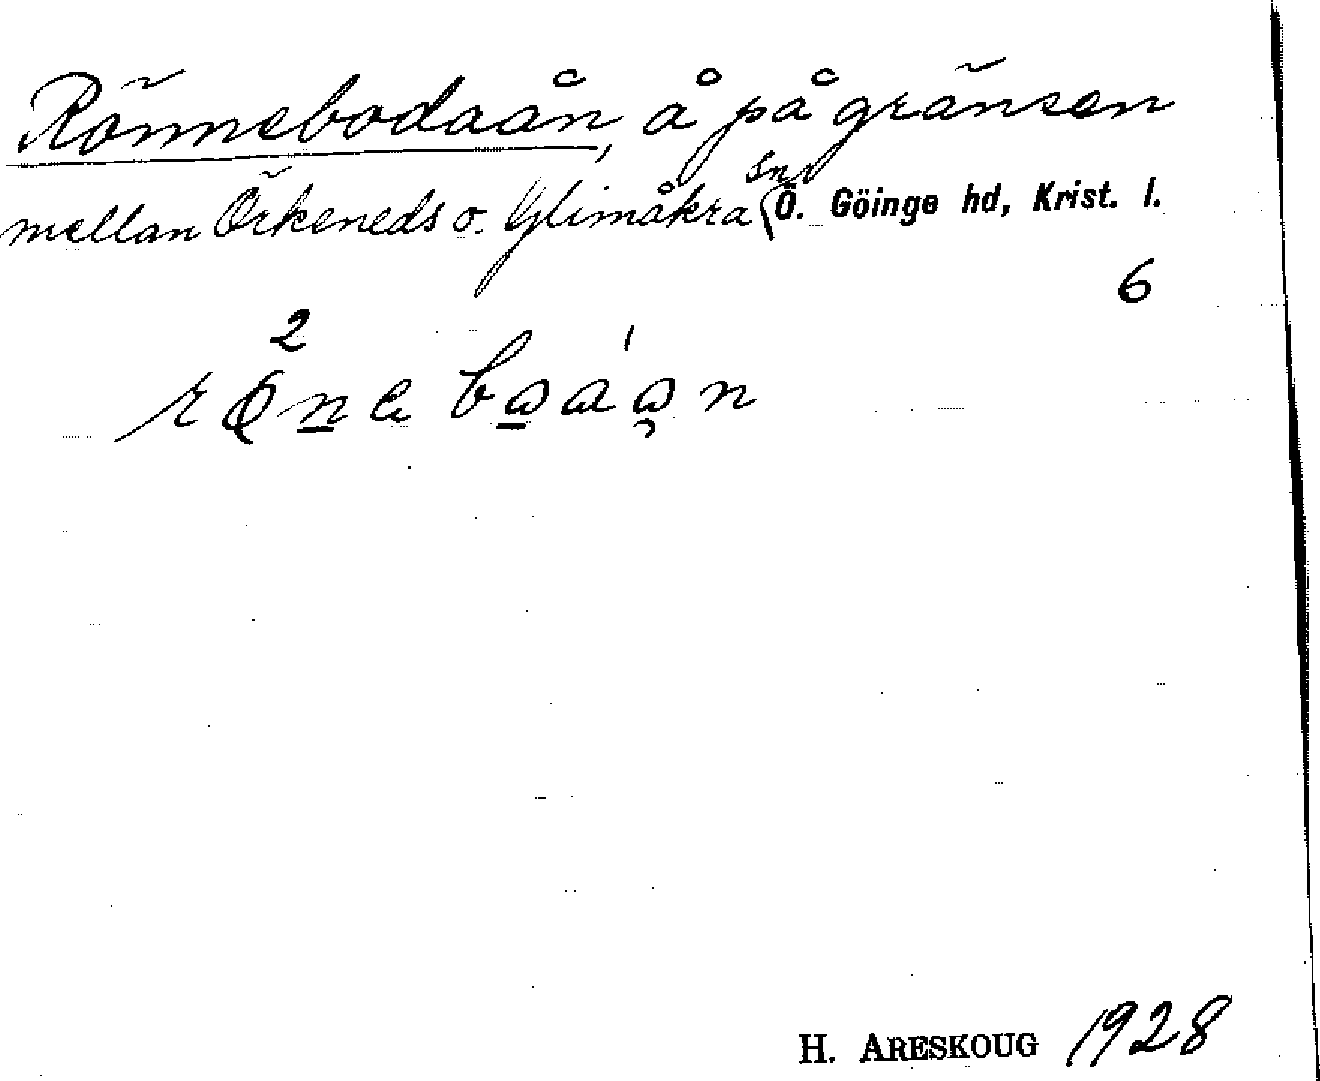 Rönnebodaån, å på gränsen
mellan Örkeneds o. Glimåkra snr Ö. Göinge hd, Krist. l.
6
H. ARESKOUG 1928